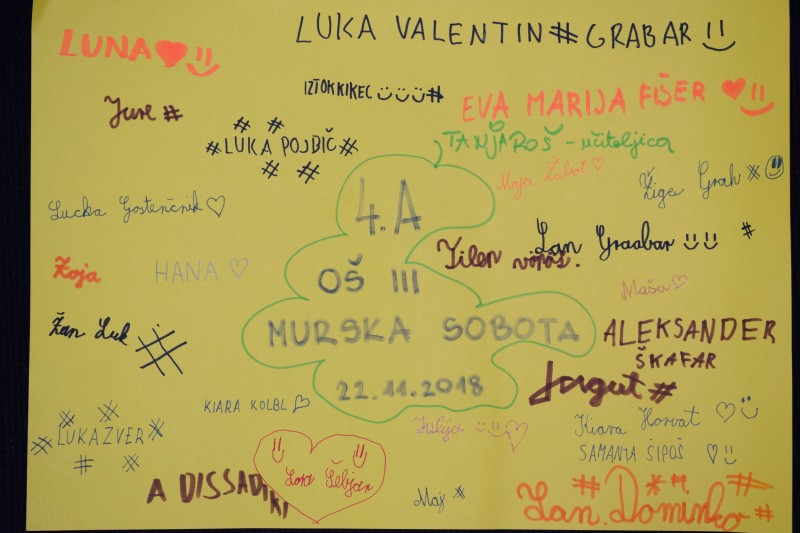 LUKA VALENTIN # GRABAR
LUNA
IZTOK KIKEC #
EVA MARIJA FIŠER
Jure #
# LUKA POJBIČ #
TANJA ROŠ - učiteljica
Maja Žabot
Žiga Grah #
Lucka Gostenčnik
4.A
Lan Graabar #
Tilen vöröš.
Zoja
HANA
OŠ III
Maša
Žan Luk #
MURSKA SOBOTA
ALEKSANDER
ŠKAFAR
22.11.2018
#
KIARA KOLBL
Julija
Kiara Horvat
# LUKA ZVER #
SAMANTA ŠIPOŠ
A DISSADIKI
Lora Šebjan
Maj #
Lan Dominko #